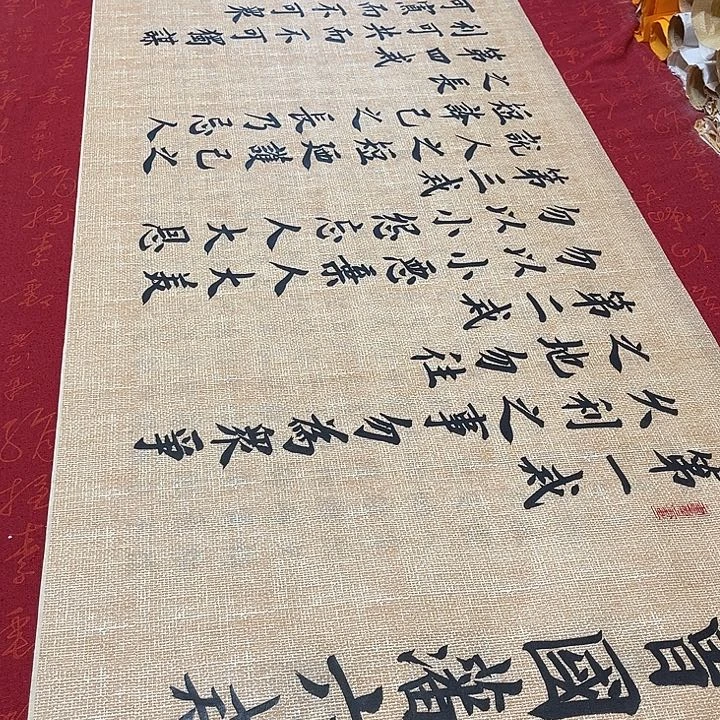 曾國藩六戒
第一戒
久利之事勿為衆爭
之地勿往
第二戒
勿以小惡棄人大美
勿以小怨忘人大恩
第三戒
說人之短廼護己之
短誇己之長乃忌人
之長
第四戒
利可共而不可獨謀
可寡而不可衆